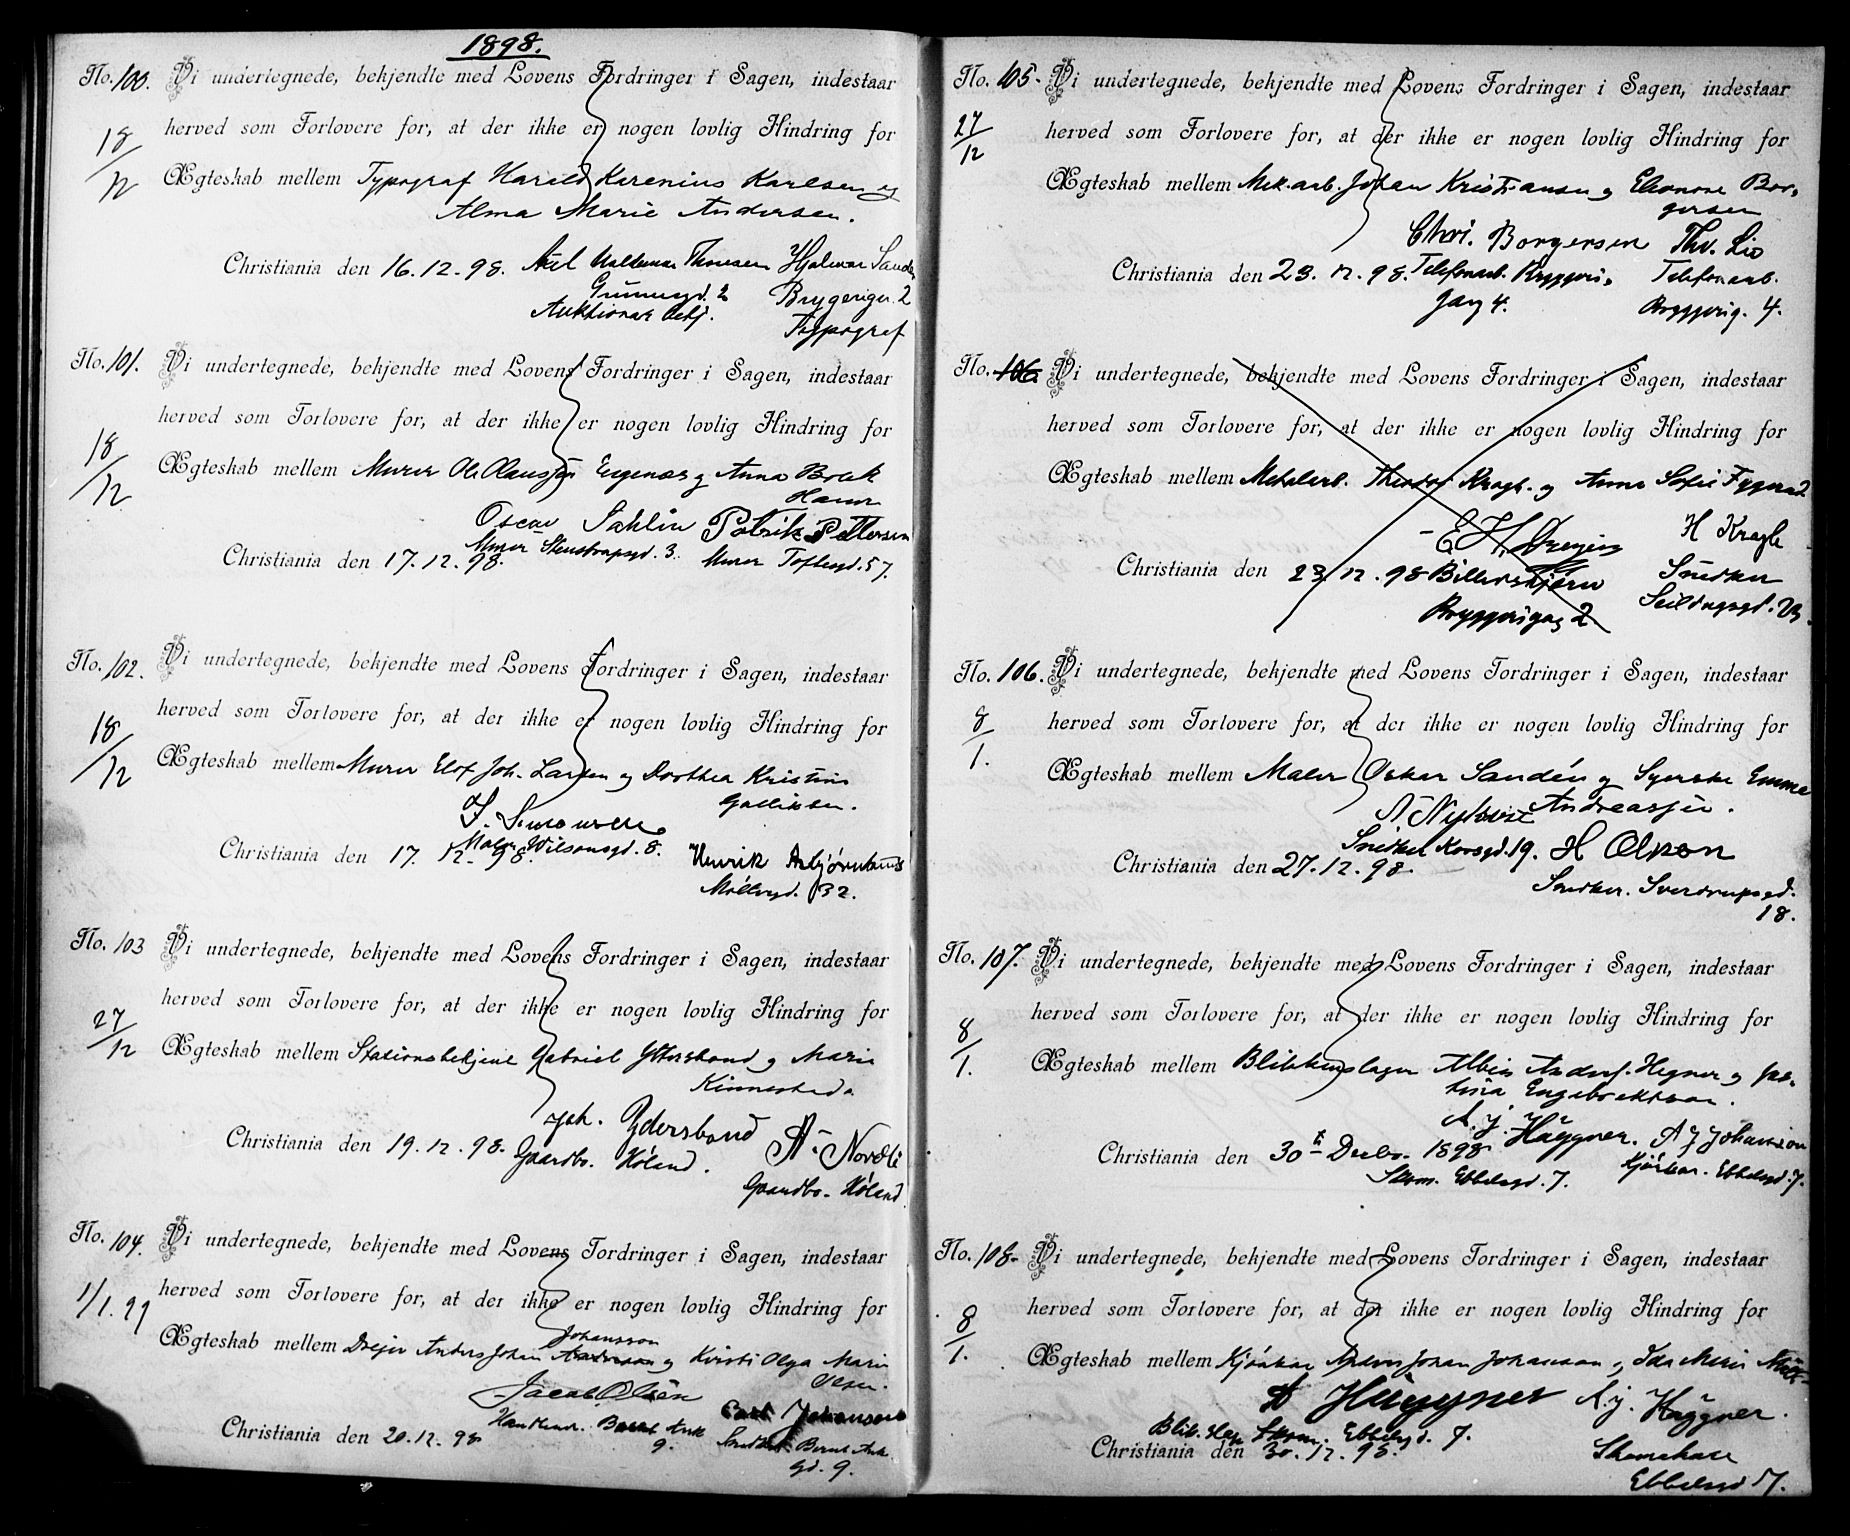 1898.
No. 100. Vi undertegnede, bekjendte med Lovens Fordringer i Sagen, indestaar
18/12 herved som Forlovere for, at der ikke er nogen lovlig Hindring for
Ægteskab mellem Typograf Harald Karenius Karlsen og
Alma Marie Andersen.
Christiania den 16.12.98. Axel Valdemar Thoresen Hjalmar
Brygerigd. 2
Auktionsbetj.
Typograf
No. 101. Vi undertegnede, bekjendte med Lovens Fordringer i Sagen, indestaar
18/12 herved som Forlovere for, at der ikke er nogen lovlig Hindring for
Ægteskab mellem Murer Ole Olaussen og Anna
Oscar Sahlin Patrik Pettersen
Murer Stenstrupgd. 3. Murer Toftesgd. 57.
Christiania den 17.12.98.
No. 102. Vi undertegnede, bekjendte med Lovens Fordringer i Sagen, indestaar
18/12 herved som Forlovere for, at der ikke er nogen lovlig Hindring for
Ægteskab mellem Murer Elof Joh. Larsen og Dorthea Kristine
Gulliksen.
Maler Wilsonsgd. 8. Henrik
Christiania den 17.12.98. Møllergd. 32.
No. 103 Vi undertegnede, bekjendte med Lovens Fordringer i Sagen, indestaar
27/12 herved som Forlovere for, at der ikke er nogen lovlig Hindring for
Ægteskab mellem Stationsbetjent Gabriel Ytterbond og Marie
Kinnestad.
Joh. Ydersbond A. Nordli
Christiania den 19.12.98. Gaardbr. Høland.
Gaardbr. Høland
No. 104. Vi undertegnede, bekjendte med Lovens Fordringer i Sagen, indestaar
1/1.99 herved som Forlovere for, at der ikke er nogen lovlig Hindring for
Johansson
Ægteskab mellem Dreier Anders Johan Andersson og Kirsti Olga Marie
Olsen.
Jacob Olsen Carl Johansson
Christiania den 20.12.98
9. gd. 9.
No. 105. Vi undertegnede, bekjendte med Lovens Fordringer i Sagen, indestaar
27/12 herved som Forlovere for, at der ikke er nogen lovlig Hindring for
Ægteskab mellem Mek.arb. Johan Kristiansen og Eleonore Bor-
gersen
Chri. Borgersen Thv. Lio
Christiania den 23.12.98. Telefonarb. Bryggeri- Telefonarb.
gang 4. Bryggerig. 4.
No. 106. Vi undertegnede, bekjendte med Lovens Fordringer i Sagen, indestaar
herved som Forlovere for, at der ikke er nogen lovlig Hindring for
Ægteskab mellem Metalarb. Theodor Kragh og Anna Sofie
H Kragh
Christiania den 23.12.98 Snedker
Bryggerigang 2 Seildugsgd.
No. 106. Vi undertegnede, bekjendte med Lovens Fordringer i Sagen, indestaar
8/1. herved som Forlovere for, at der ikke er nogen lovlig Hindring for
Ægteskab mellem Maler Oskar Sandén og Syerske Emma
Andreassen.
A Nykvist
Snedker Korsgd. 19. H Olsson
Christiania den 27.12.98. Snedker. Sverdrupsgd.
18.
No. 107. Vi undertegnede, bekjendte med Lovens Fordringer i Sagen, indestaar
8/1. herved som Forlovere for, at der ikke er nogen lovlig Hindring for
Ægteskab mellem Blikkenslager Albin Anders. Hegner og
Engebrektsen.
A. J. Häggner. A J Johansson
Christiania den 30te Decbr. 1898 Kjørkar. Ebbelsgd. 7.
Skom. Ebbelsgd. 7.
No. 108. Vi undertegnede, bekjendte med Lovens Fordringer i Sagen, indestaar
8/1. herved som Forlovere for, at der ikke er nogen lovlig Hindring for
Ægteskab mellem Kjørekar Anders Johan Johansson og Ida Marie
A Häggner A. J. Häggner.
Blik. Ebbelsgd. 7.
Christiania den 30.12.98. Skomaker
Ebbelsgd 7.